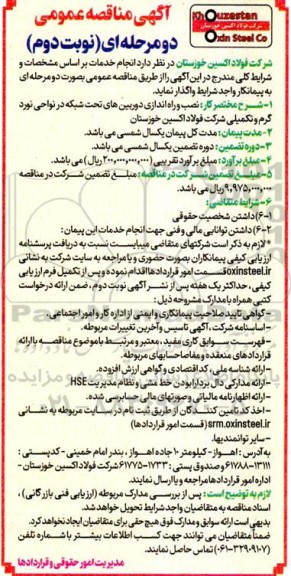 Khouzestan
شرکت فولاد اکسین خوزستان
Oxin Steel Co
آگهی مناقصه عمومی
دو مرحله ای (نوبت دوم)
شرکت فولاد اکسین خوزستان در نظر دارد انجام خدمات بر اساس مشخصات و
شرایط کلی مندرج در این آگهی را از طریق مناقصه عمومی بصورت دو مرحله ای
به پیمانکار واجد شرایط واگذار نماید.
۱- شرح مختصر کار: نصب و راه اندازی دوربین های تحت شبکه در نواحی نورد
گرم و تکمیلی شرکت فولاد اکسین خوزستان
۲- مدت پیمان: مدت کل پیمان یکسال شمسی می باشد.
۳- دوره تضمین: دوره تضمین یکسال شمسی می باشد.
۴- مبلغ برآورد: مبلغ برآورد تقریبی ریال) می باشد.
۵- مبلغ تضمین شرکت در مناقصه: مبلغ تضمین شرکت در مناقصه
ریال می باشد.
۶- شرایط متقاضی:
۶-۱) داشتن شخصیت حقوقی
۶-۲) داشتن توانایی مالی و فنی جهت انجام خدمات این پیمان:
لازم به ذکر است شرکتهای متقاضی میبایست نسبت به دریافت پرسشنامه
ارزیابی کیفی پیمانکاران بصورت حضوری و یا مراجعه به سایت شرکت به نشانی
oxinsteel.ir قسمت امور قراردادها اقدام نموده و پس از تکمیل فرم ارزیابی
کیفی، حداکثر یک هفته پس از نشر آگهی نوبت دوم، ضمن ارائه درخواست
کتبی همراه با مدارک مشروحه ذیل:
- گواهی تایید صلاحیت پیمانکاری و ایمنی از اداره کار و امور اجتماعی.
- اساسنامه شرکت، آگهی تاسیس و آخرین تغییرات مربوطه.
- فهرست سوابق کاری مفید، معتبر و مرتبط با موضوع مناقصه با ارائه
قراردادهای منعقده و مفاصا حسابهای مربوطه.
- ارائه شناسه ملی، کد اقتصادی و گواهی ارزش افزوده.
- ارائه مدارکی دال بر دارا بودن خط مشی و نظام مدیریت HSE
- ارائه اظهارنامه مالیاتی و صورتهای مالی حسابرسی شده.
- اخذ کد تامین کنندگان از طریق ثبت نام در سایت مربوطه به نشانی
srm.oxinsteel.ir (قسمت امور قراردادها)
- سایر توانمندیها.
به آدرس: اهواز - کیلومتر ۱۰ جاده اهواز، بندر امام خمینی - کدپستی:
۶۱۷۸۸-۱۳۱۱۱ و صندوق پستی: ۶۱۷۷۵-۱۷۳۳ شرکت فولاد اکسین خوزستان -
اداره امور قراردادها مراجعه و یا ارسال نمایند.
لازم به توضیح است: پس از بررسی مدارک مربوطه (ارزیابی فنی بازرگانی)،
اسناد مناقصه به متقاضیان واجد شرایط تحویل خواهد شد.
بدیهی است ارائه سوابق و مدارک فوق هیچ حقی برای متقاضیان ایجاد نخواهد کرد.
ضمناً متقاضیان می توانند جهت کسب اطلاعات بیشتر با شماره تلفن
(۰۶۱-۳۲۹۰۹۱۰۷) تماس حاصل نمایند.
مدیریت امور حقوقی و قراردادها